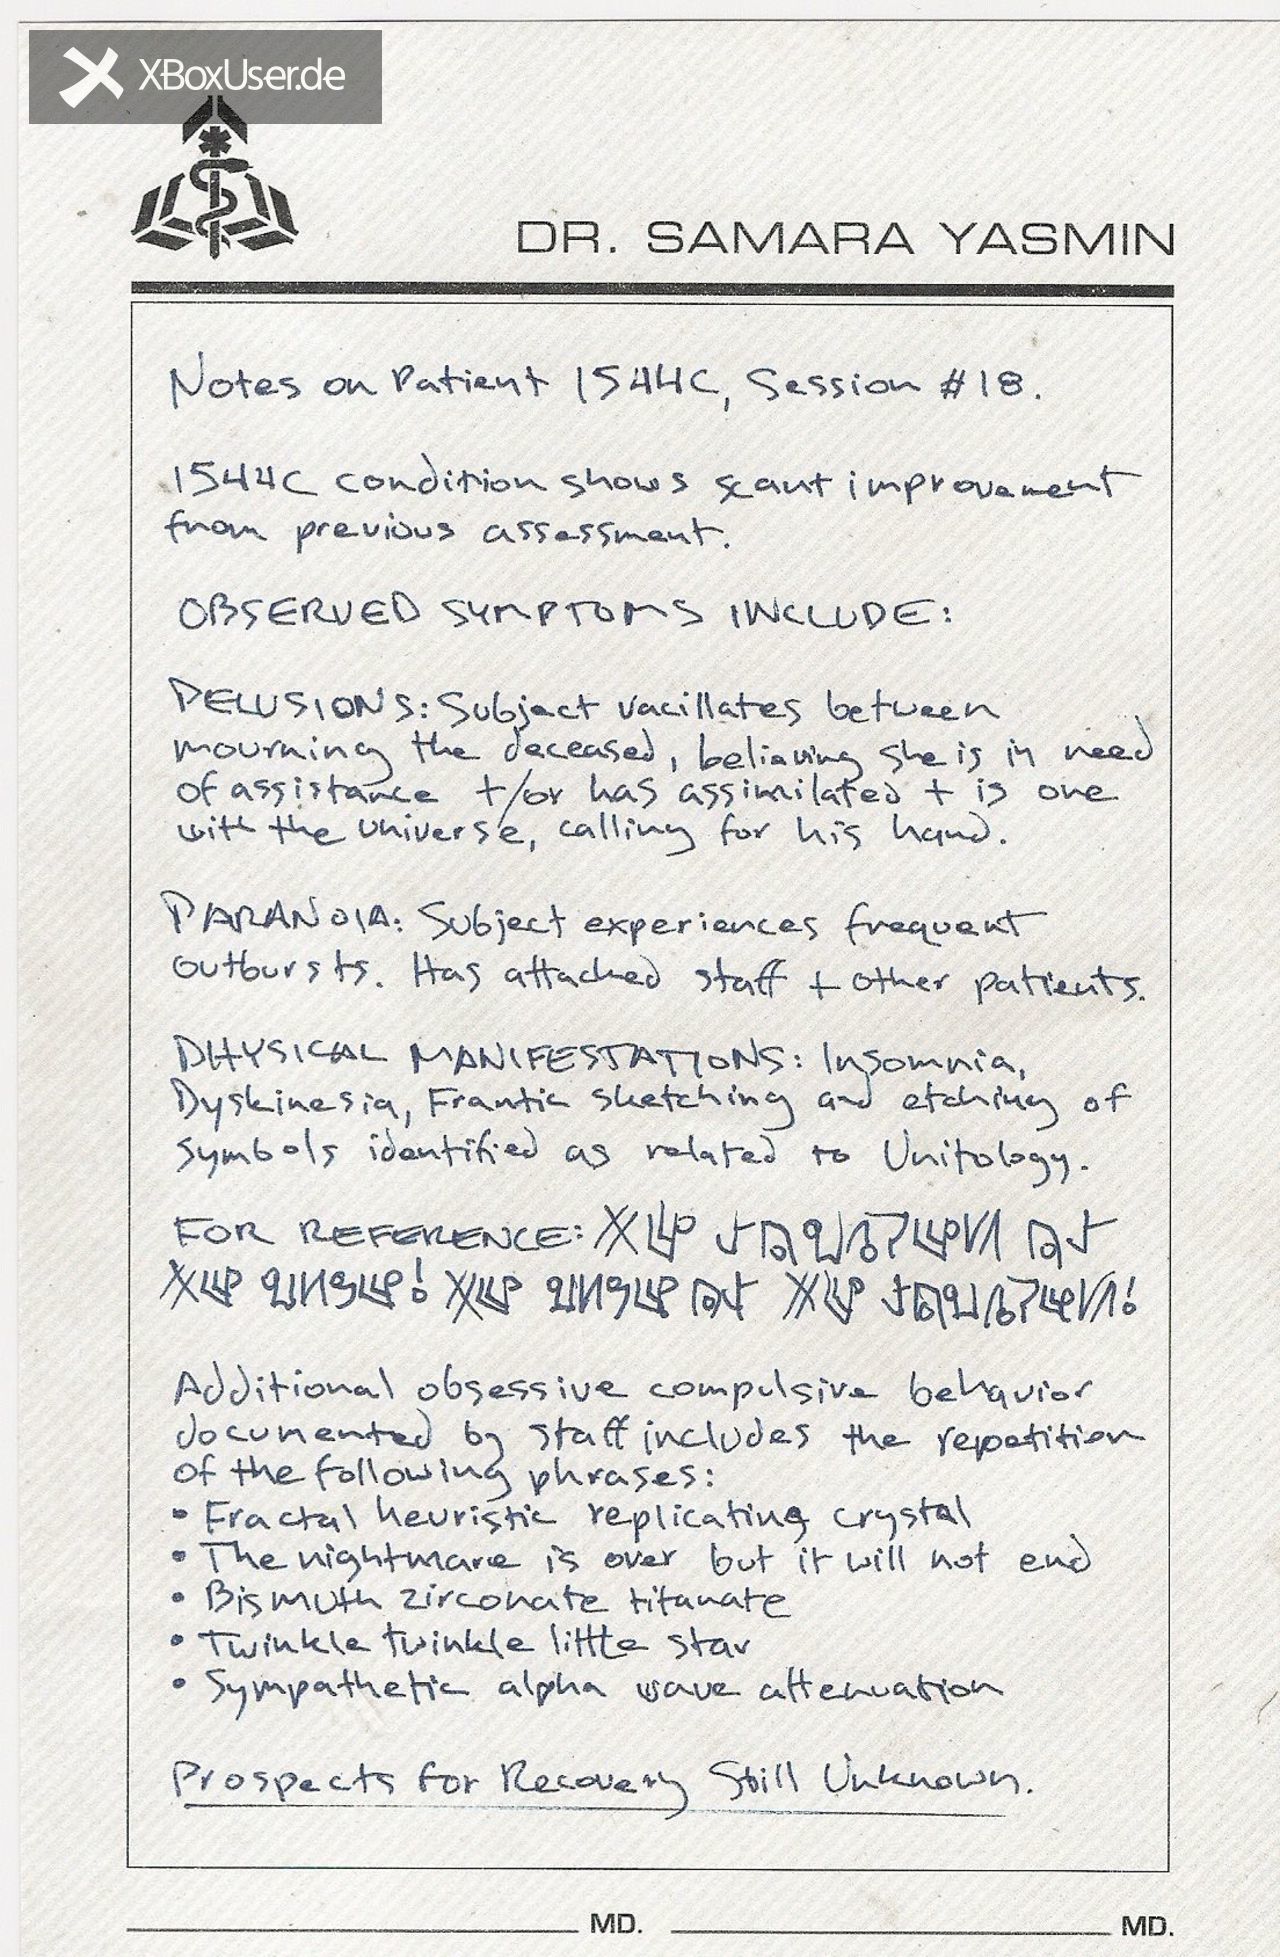 XBoxUser.de
DR. SAMARA YASMIN
Notes on Patient 1544C, Session #18.
1544C condition shows scant improvement
from previous assessment.
OBSERVED SYMPTOMS INCLUDE:
DELUSIONS: Subject vacillates between
mourning the deceased, believing she is in need
of assistance +/or has assimilated + is one
with the universe, calling for his hand.
PARANOIA: Subject experiences frequent
outbursts. Has attacked staff + other patients.
PHYSICAL MANIFESTATIONS: Insomnia,
Dyskinesia, Frantic sketching and etching of
symbols identified as related to Unitology.
FOR REFERENCE:
Additional obsessive compulsive behavior
documented by staff includes the repetition
of the following phrases:
• Fractal heuristic replicating crystal
• The nightmare is over but it will not end
• Bismuth zirconate titanate
• Twinkle twinkle little star
• Sympathetic alpha wave attenuation
Prospects for Recovery Still Unknown.
MD. MD.